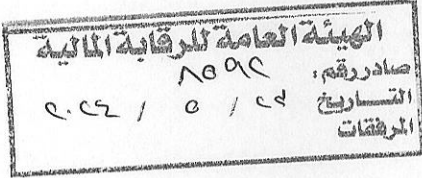 الهيئة العامة للرقابة المالية
صادر رقم: ٨٥٩٢
التاريخ ٢٩ / ٥ / ٢٠٢٤
المرفقات